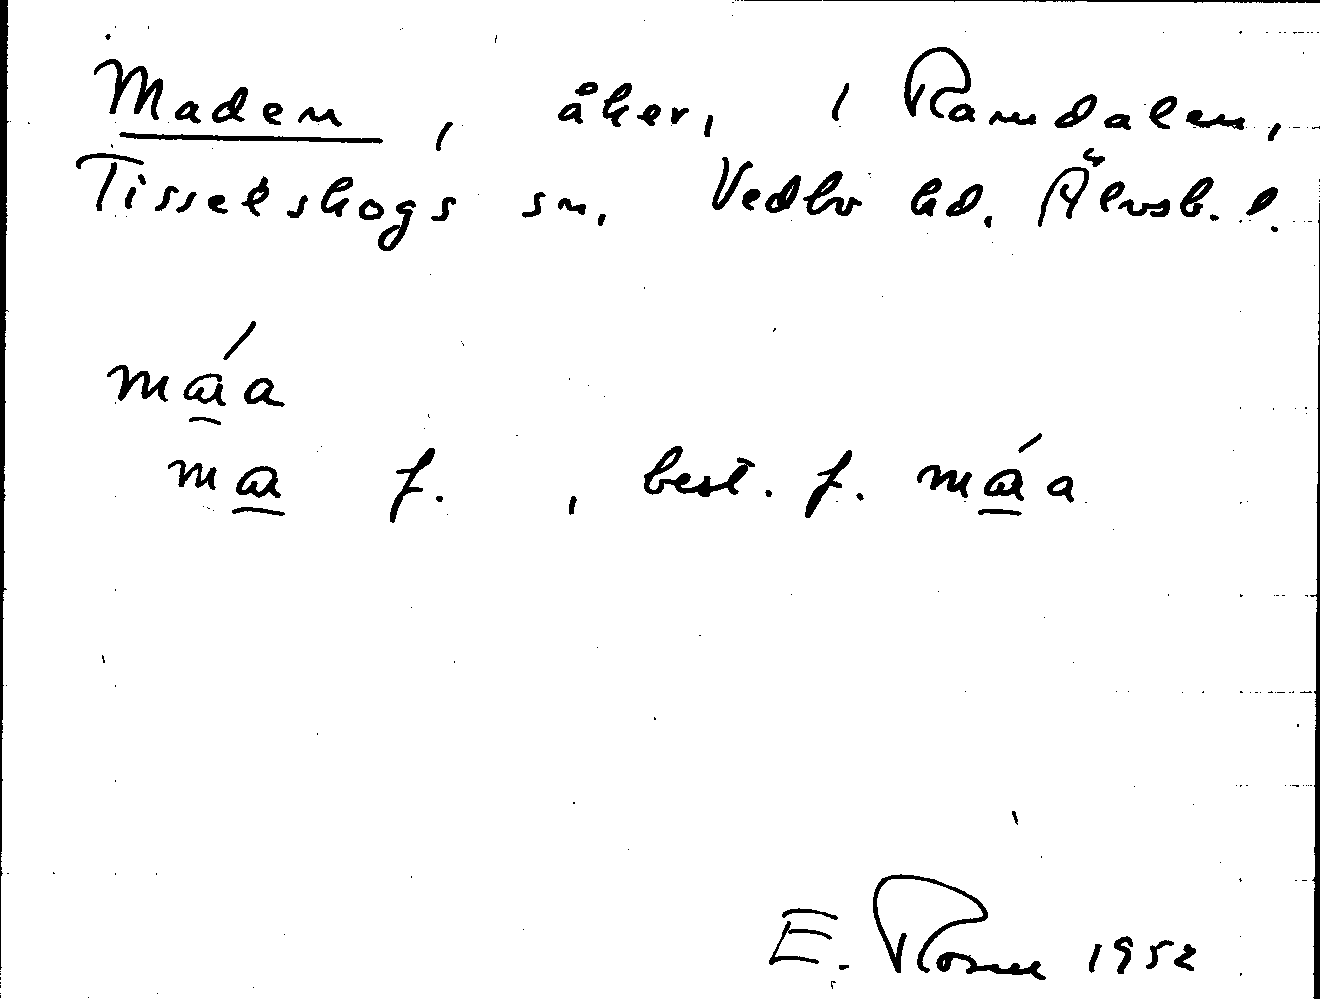 Maden, åker, i Ramdalen,
Tisselskogs sn. Vedbo hd. Älvsb. l.
mɑ̱́a
mɑ̱ f. , best. f. mɑ̱́a
E. 1952